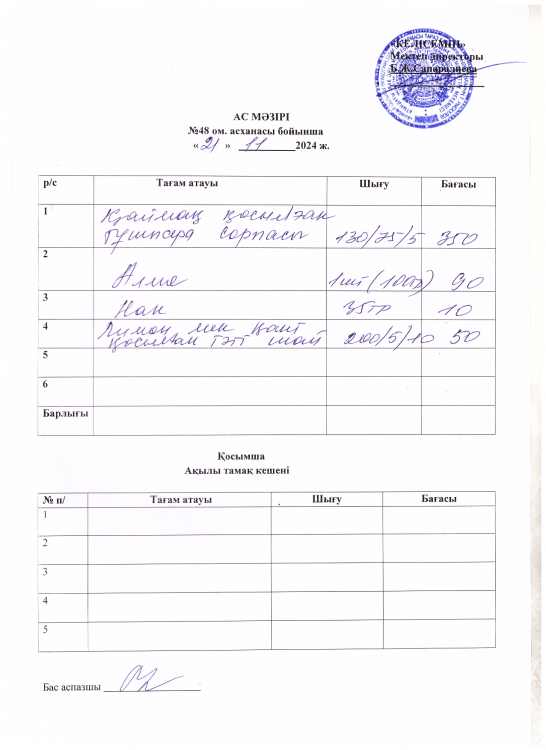 «КЕЛІСЕМІН»
Мектеп директоры
Б.Ж.Сапаралиева
АС МӘЗІРІ
№48 ом. асханасы бойынша
« 21 » 11 2024 ж.
р/с Тағам атауы Шығу Бағасы
1 Қаймақ қосылған
тұшпара сорпасы 130/75/5 350
2
Алма 1шт (100гр) 90
3 Нан 35гр 10
4 Лимон мен қант
қосылған тәтті шай 200/5/10 50
5
6
Барлығы
Қосымша
Ақылы тамақ кешені
№ п/ Тағам атауы Шығу Бағасы
1
2
3
4
5
Бас аспазшы